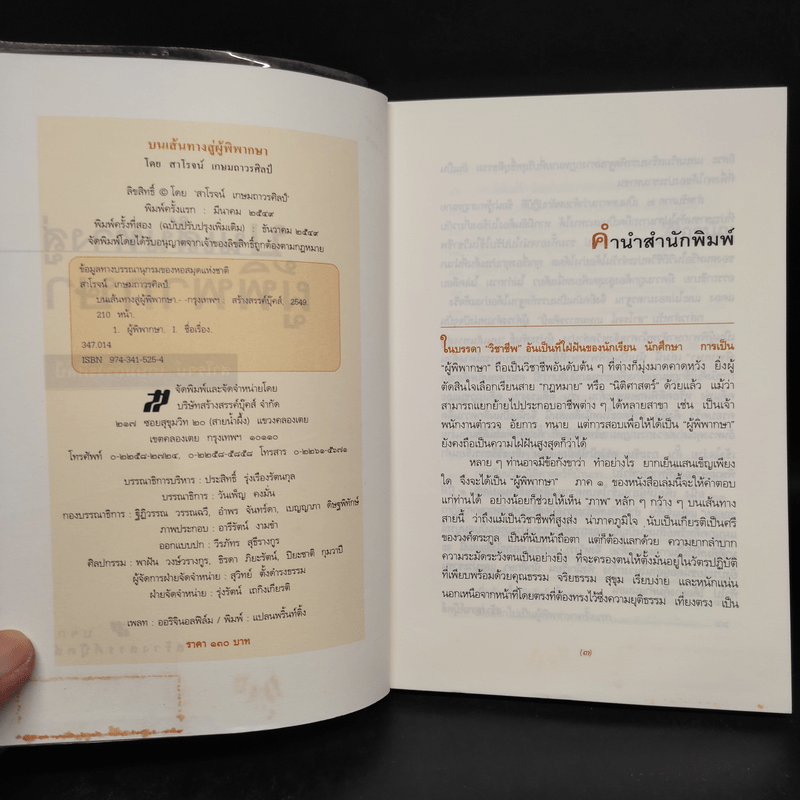 บนเส้นทางสู่ผู้พิพากษา
โดย สาโรจน์ เกษมถาวรศิลป์
ลิขสิทธิ์ © โดย สาโรจน์ เกษมถาวรศิลป์
พิมพ์ครั้งแรก : มีนาคม ๒๕๔๙
พิมพ์ครั้งที่สอง (ฉบับปรับปรุงเพิ่มเติม) : ธันวาคม ๒๕๔๙
จัดพิมพ์โดยได้รับอนุญาตจากเจ้าของลิขสิทธิ์ถูกต้องตามกฎหมาย
ข้อมูลทางบรรณานุกรมของหอสมุดแห่งชาติ
สาโรจน์ เกษมถาวรศิลป์.
บนเส้นทางสู่ผู้พิพากษา.- -กรุงเทพฯ : สร้างสรรค์บุ๊คส์, 2549.
210 หน้า.
1. ผู้พิพากษา. I. ชื่อเรื่อง.
347.014
ISBN 974-341-525-4
จัดพิมพ์และจัดจำหน่ายโดย
บริษัทสร้างสรรค์บุ๊คส์ จำกัด
๒๑๗ ซอยสุขุมวิท ๒๐ (สายน้ำผึ้ง) แขวงคลองเตย
เขตคลองเตย กรุงเทพฯ ๑๐๑๑๐
โทรศัพท์ ๐-๒๒๕๘-๒๗๒๔, ๐-๒๒๕๘-๕๘๕๘ โทรสาร ๐-๒๒๖๑-๕๖๗๑
บรรณาธิการบริหาร : ประสิทธิ์ รุ่งเรืองรัตนกุล
บรรณาธิการ : วันเพ็ญ คงมั่น
กองบรรณาธิการ : ฐิฏิวรรณ วรรณฉวี, อำพร จันทร์ดา, เบญญาภา ดิษฐพิทักษ์
ภาพประกอบ : อารีรัตน์ งามขำ
ออกแบบปก : วีรภัทร สุธีรางกูร
ศิลปกรรม : พาฝัน วงษ์วรางกูร, ธิรดา ภิยะรัตน์, ปิยะชาติ กุมวาปี
ผู้จัดการฝ่ายจัดจำหน่าย : สุวิทย์ ตั้งดำรงธรรม
ฝ่ายจัดจำหน่าย : รุ่งรัตน์ เถกิงเกียรติ
เพลท : ออริจินอลฟิล์ม / พิมพ์ : แปลนพริ้นท์ติ้ง
ราคา ๑๓๐ บาท
คำนำสำนักพิมพ์
ในบรรดา “วิชาชีพ” อันเป็นที่ใฝ่ฝันของนักเรียน นักศึกษา การเป็น
“ผู้พิพากษา” ถือเป็นวิชาชีพอันดับต้น ๆ ที่ต่างก็มุ่งมาดคาดหวัง ยิ่งผู้
ตัดสินใจเลือกเรียนสาย “กฎหมาย” หรือ “นิติศาสตร์” ด้วยแล้ว แม้ว่า
สามารถแยกย้ายไปประกอบอาชีพต่าง ๆ ได้หลายสาขา เช่น เป็นเจ้า
พนักงานตำรวจ อัยการ ทนาย แต่การสอบเพื่อให้ได้เป็น “ผู้พิพากษา”
ยังคงถือเป็นความใฝ่ฝันสูงสุดก็ว่าได้
หลาย ๆ ท่านอาจมีข้อกังขาว่า ทำอย่างไร ยากเย็นแสนเข็ญเพียง
ใด จึงจะได้เป็น “ผู้พิพากษา” ภาค ๑ ของหนังสือเล่มนี้จะให้คำตอบ
แก่ท่านได้ อย่างน้อยก็ช่วยให้เห็น “ภาพ” หลัก ๆ กว้าง ๆ บนเส้นทาง
สายนี้ ว่าถึงแม้เป็นวิชาชีพที่สูงส่ง น่าภาคภูมิใจ นับเป็นเกียรติเป็นศรี
ของวงศ์ตระกูล เป็นที่นับหน้าถือตา แต่ก็ต้องแลกด้วย ความยากลำบาก
ความระมัดระวังตนเป็นอย่างยิ่ง ที่จะครองตนให้ตั้งมั่นอยู่ในวัตรปฏิบัติ
ที่เพียบพร้อมด้วยคุณธรรม จริยธรรม สุขุม เรียบง่าย และหนักแน่น
นอกเหนือจากหน้าที่โดยตรงที่ต้องทรงไว้ซึ่งความยุติธรรม เที่ยงตรง เป็น
(๓)